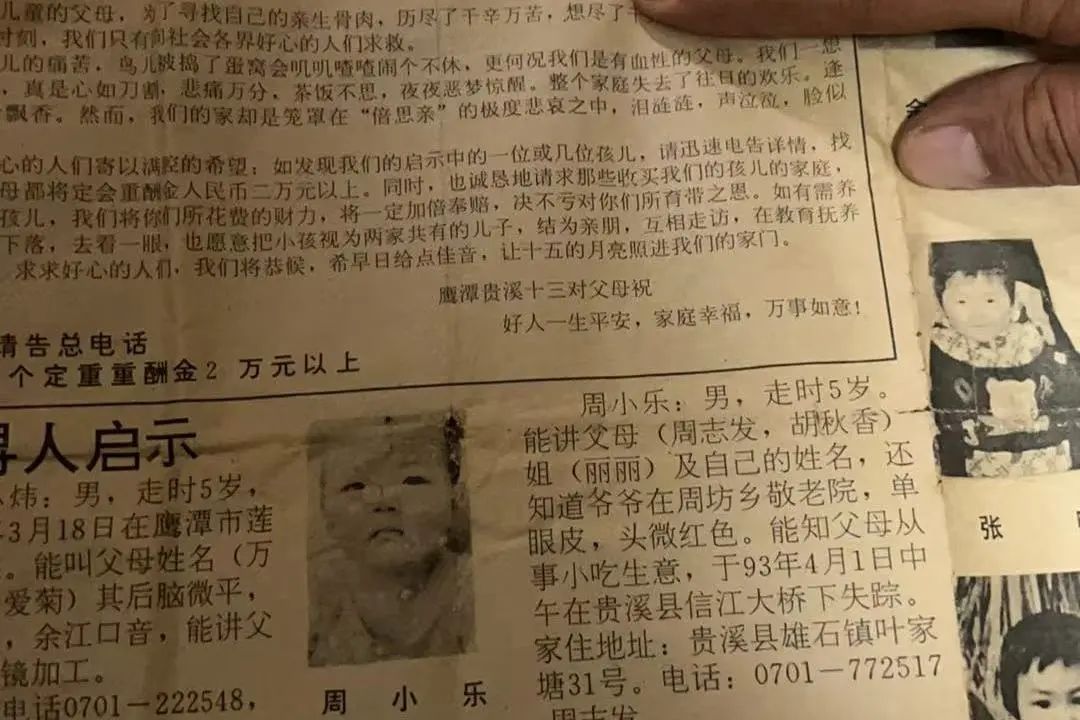 儿童的父母，为了寻找自己的亲生骨肉，历尽了千辛万苦，想尽了
时刻，我们只有向社会各界好心的人们求救。
儿的痛苦，鸟儿被捣了蛋窝会叽叽喳喳闹个不休，更何况我们是有血性的父母。我们一想
，真是心如刀割，悲痛万分，茶饭不思，夜夜恶梦惊醒。整个家庭失去了往日的欢乐。逢
飘香。然而，我们的家却是笼罩在“倍思亲”的极度悲哀之中，泪涟涟，声泣泣，脸似
心的人们寄以满腔的希望：如发现我们的启示中的一位或几位孩儿，请迅速电告详情，找
母都将定会重酬金人民币二万元以上。同时，也诚恳地请求那些收买我们的孩儿的家庭，
孩儿，我们将你们所花费的财力，将一定加倍奉赔，决不亏对你们所育带之恩。如有需养
下落，去看一眼，也愿意把小孩视为两家共有的儿子，结为亲朋，互相走访，在教育抚养
求求好心的人们，我们将恭候，希早日给点佳音，让十五的月亮照进我们的家门。
鹰潭贵溪十三对父母祝
好人一生平安，家庭幸福，万事如意！
请告总电话
个定重重酬金2 万元以上
寻人启示
炜：男，走时5岁，
年3月18日在鹰潭市莲
。能叫父母姓名（万
爱菊）其后脑微平，
，余江口音，能讲父
镜加工。
电话0701－222548，
周小乐
周小乐：男，走时5岁。
能讲父母（周志发，胡秋香）
姐（丽丽）及自己的姓名，还
知道爷爷在周坊乡敬老院，单
眼皮，头微红色。能知父母从
事小吃生意，于93年4月1日中
午在贵溪县信江大桥下失踪。
家住地址：贵溪县雄石镇叶家
塘31号。电话：0701－772517
周志发
张